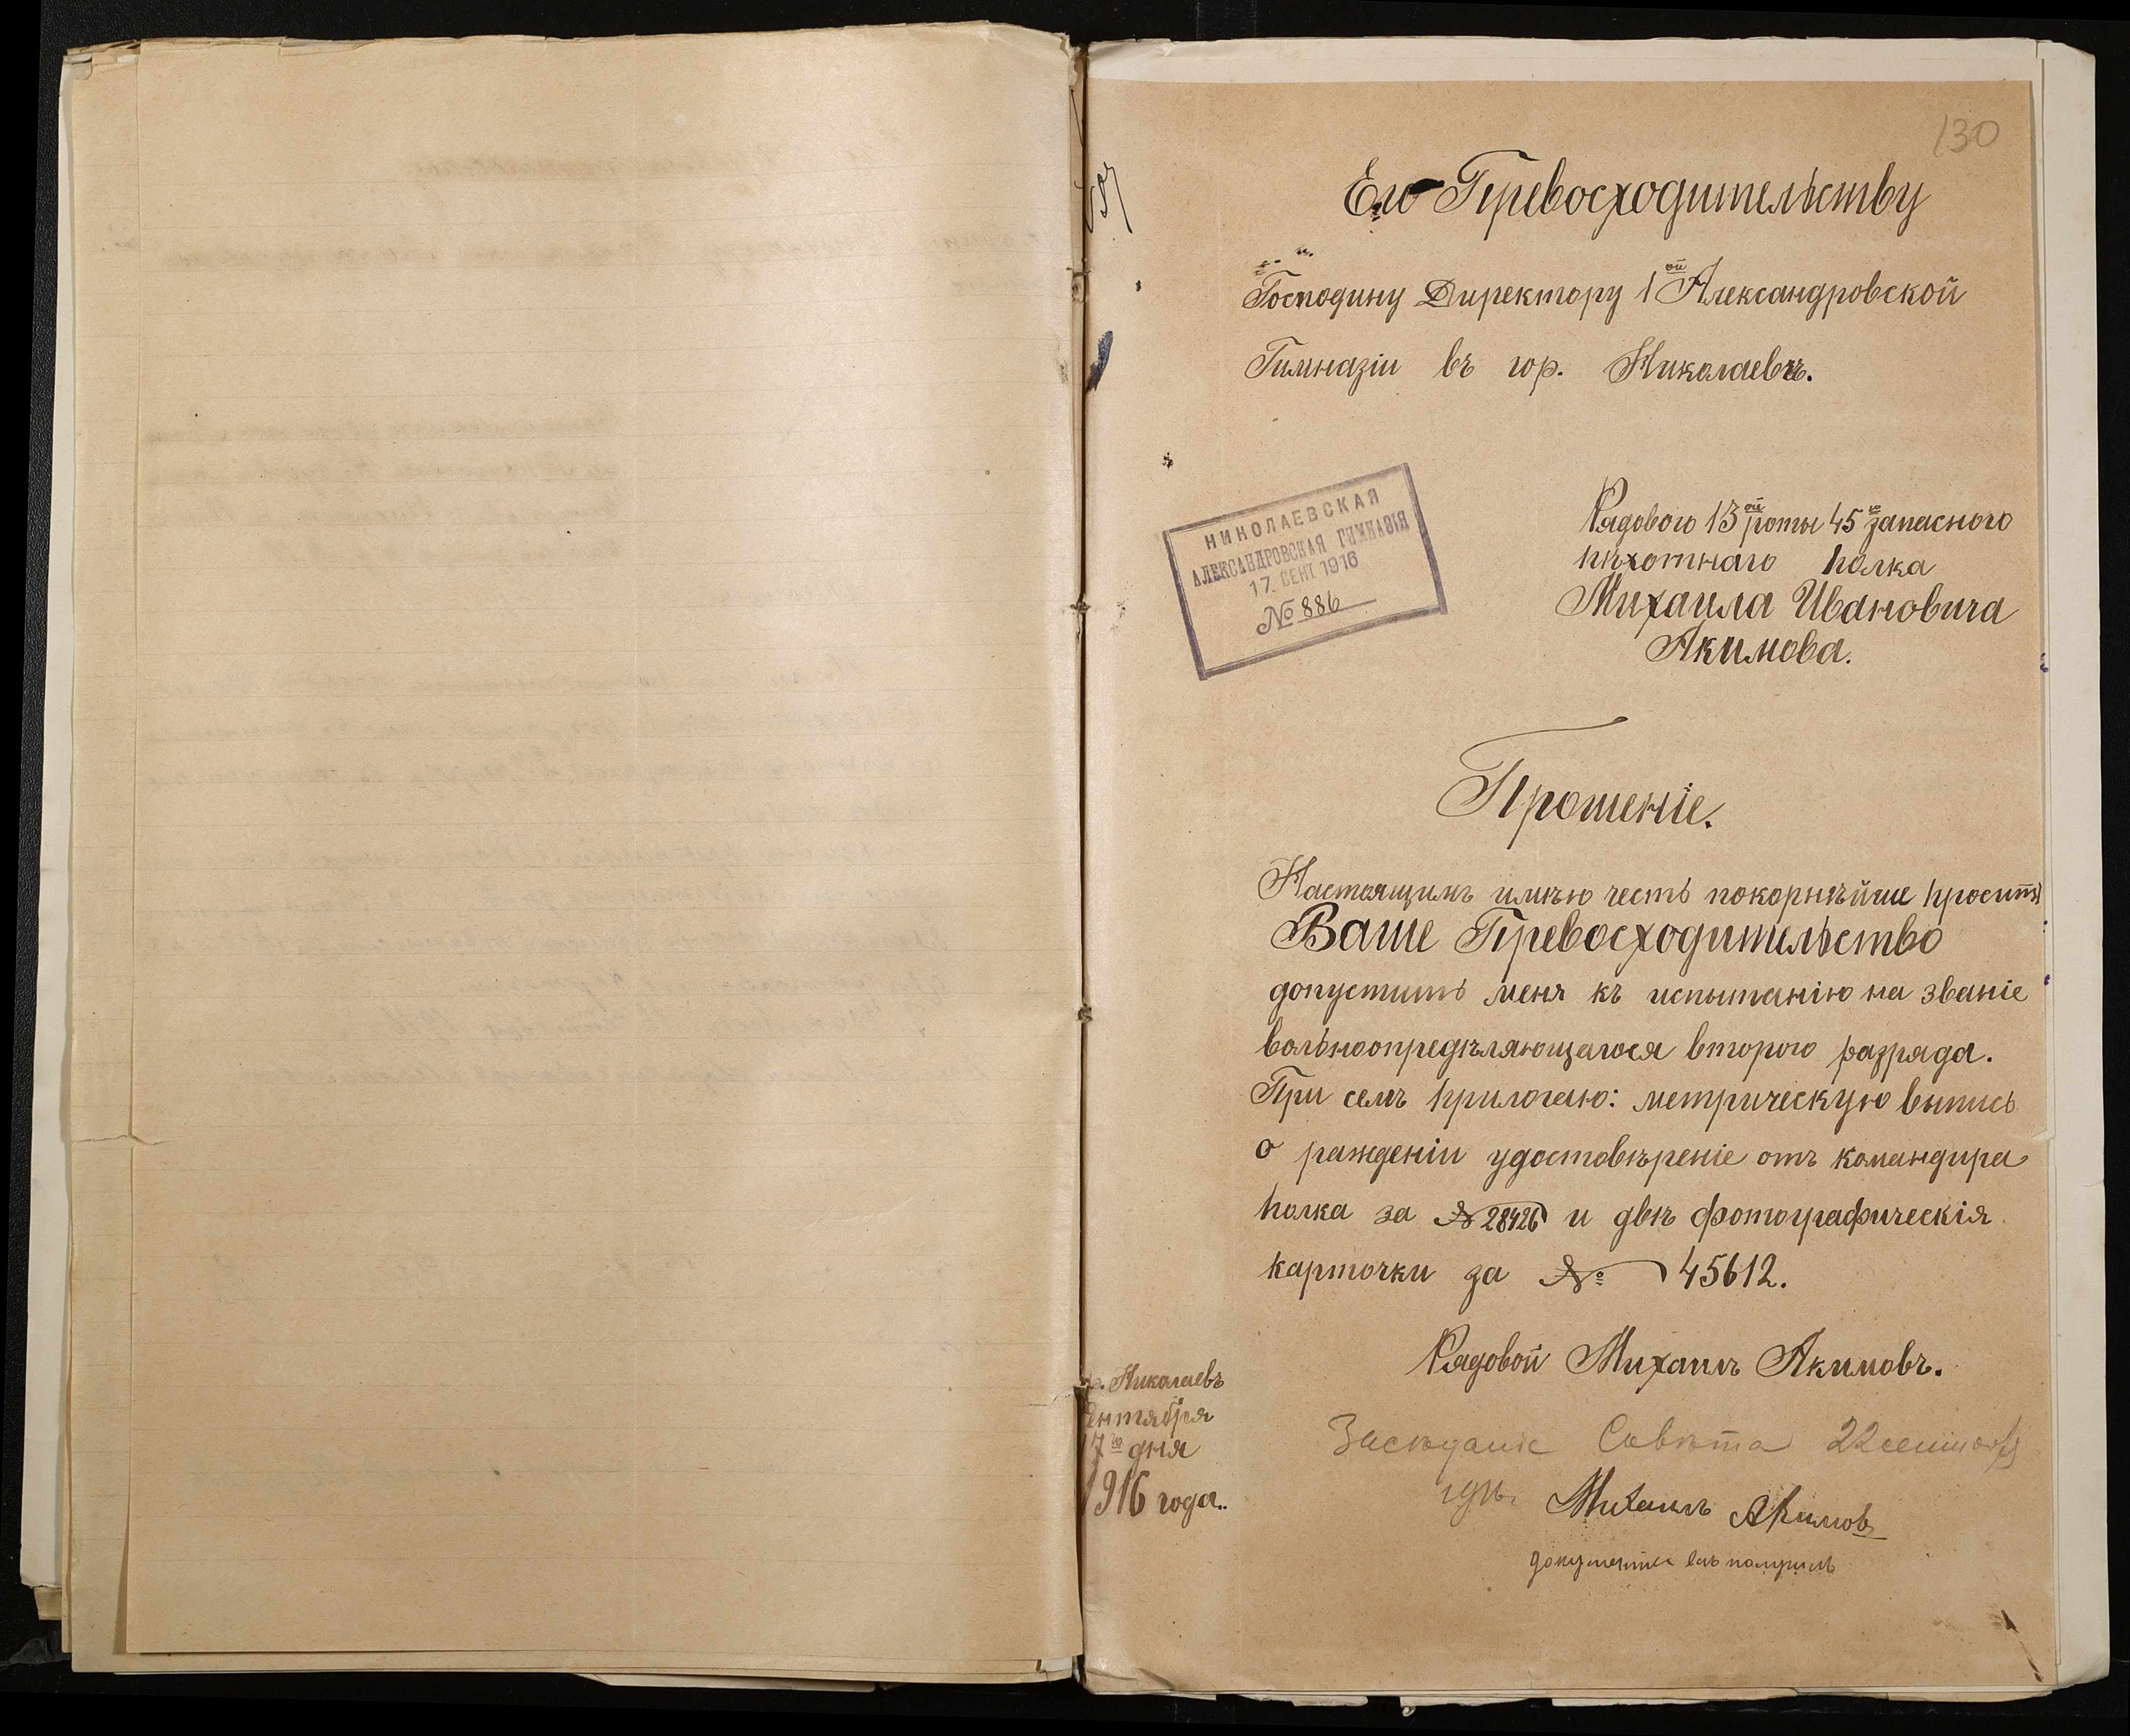 130
Его Превосходительству
Господину Директору 1ой Александровской
Гимназіи въ гор. Николаевѣ.
НИКОЛАЕВСКАЯ
АЛЕКСАНДРОВСКАЯ ГИМНАЗІЯ
17. СЕНТ. 1916
№ 886
Рядового 13ой роты 45го запасного
пѣхотнаго полка
Михаила Ивановича
Акимова.
Прошеніе.
Настоящимъ имѣю честь покорнѣйше просить
Ваше Превосходительство
допустить меня къ испытанію на званіе
вольноопредѣляющагося второго разряда.
При семъ прилогаю: метрическую выпись
о раждении удостовѣреніе отъ командира
полка за № 28426 и двѣ фотографическія
карточки за № 45612.
Рядовой Михаилъ Акимовъ.
г. Николаевъ
Сентября
17го дня
1916 года..
Засѣданіе Совѣта 22 сентября
1916.
Михаилъ Акимовъ
документы всѣ получилъ